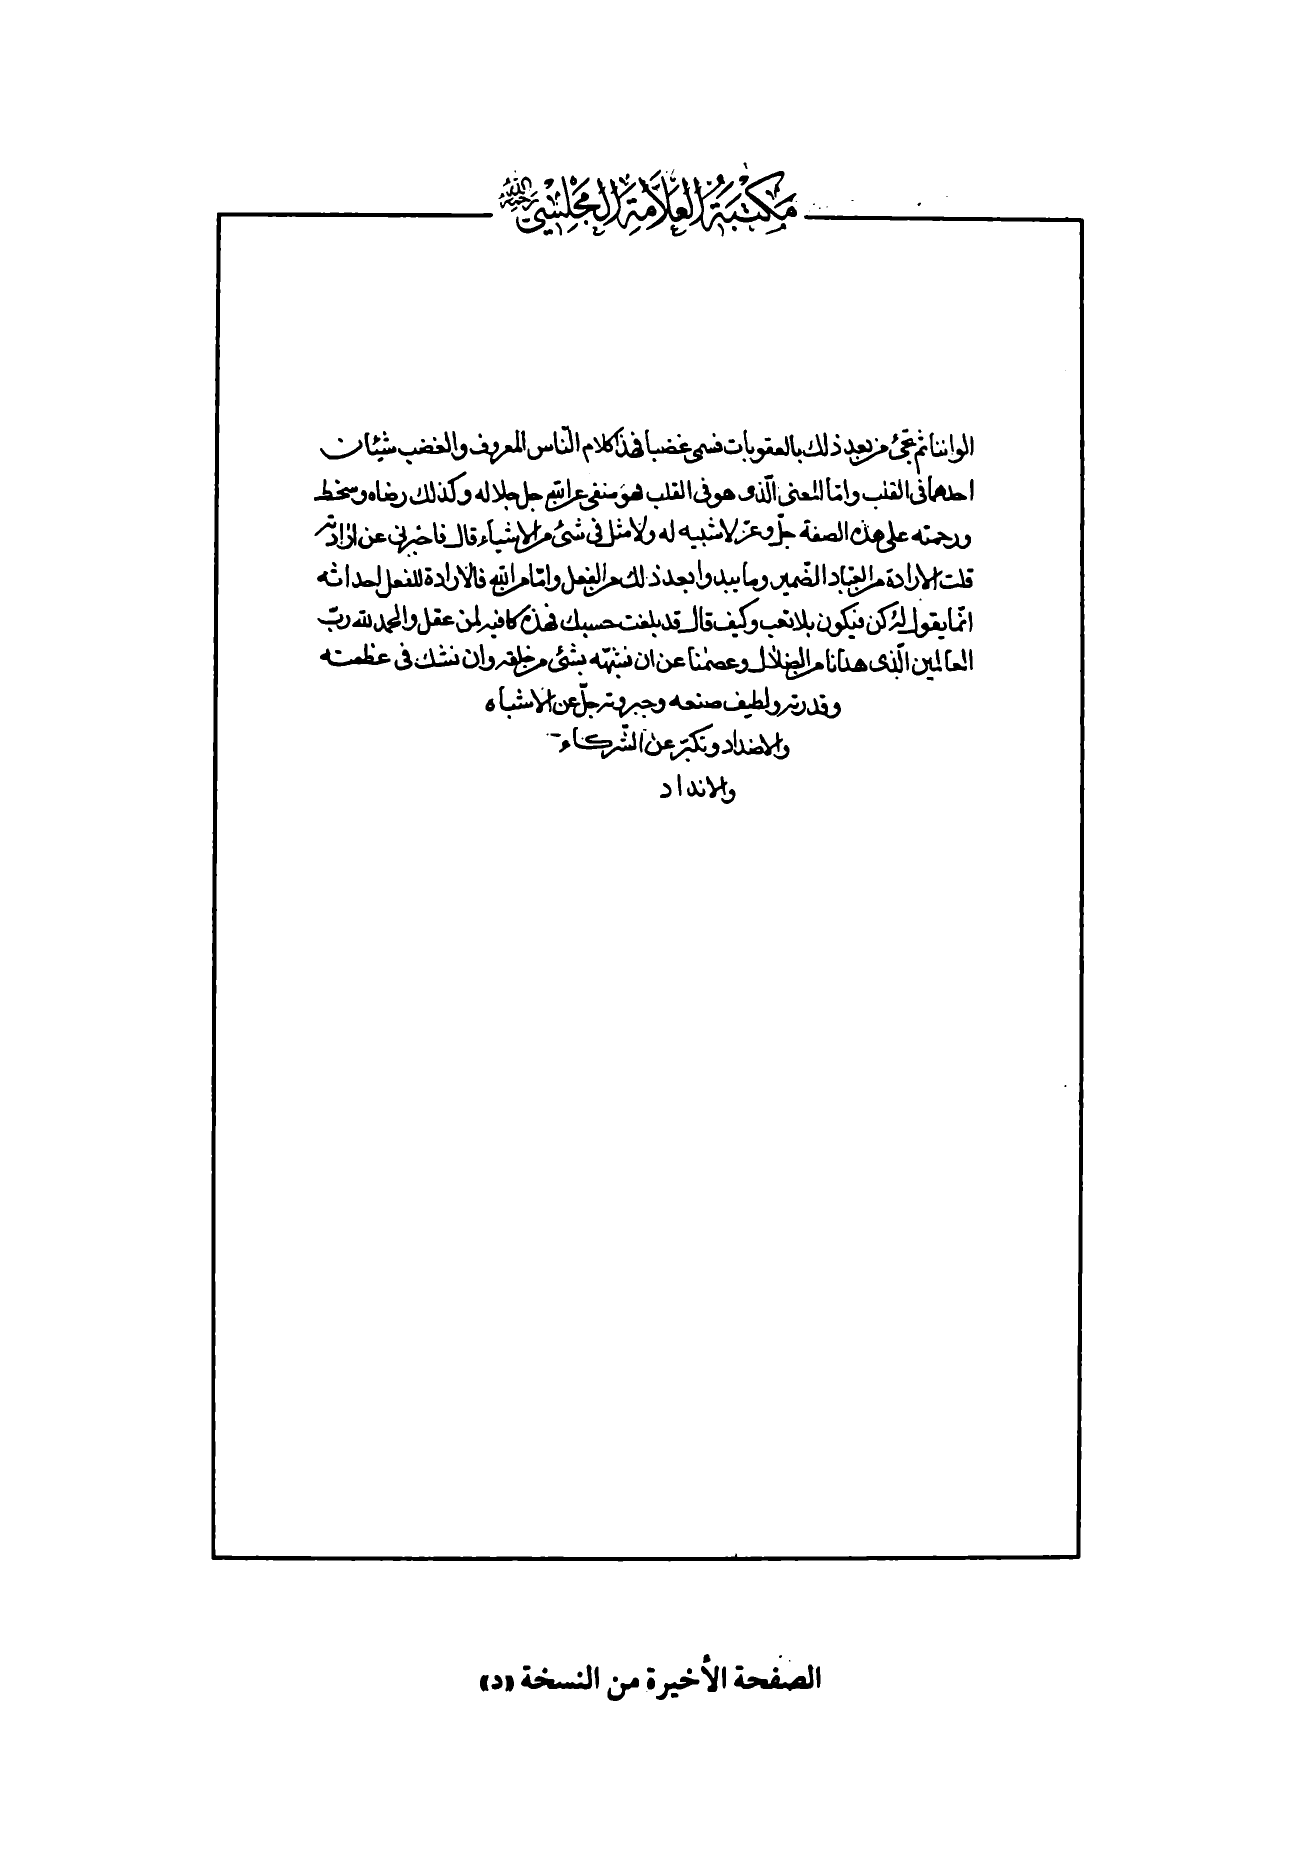 مَكْتَبَةُ العَلَّامَةِ المَجْلِسِيِّ رحمه الله
الواننا ثم تجئ من بعد ذلك بالعقوبات فسمى غضبا فهذا كلام النّاس المعروف والغضب شيئان
احدهما فى القلب وامّا المعنى الّذى هو فى القلب فهوَ منفى عن اللّه جل جلاله وكذلك رضاه وسخطه
ورحمته على هذه الصفة جلّ وعزّ لا شبيه له ولا مثل فى شئ من الاشياء قال فاخبرنى عن ارادته
قلت الارادة من العباد الضّمير وما يبدوا بعد ذلك من الفعل وامّا من اللّه فالارادة للفعل احداثه
انّما يقول له كن فيكون بلا تعب وكيف قال قد بلغت حسبك فهذه كافيه لمن عقل والحمد لله ربّ
العالمين الّذى هدانا من الضلال وعصمنا عن ان نشبّهه بشئ من خلقه وان نشك فى عظمته
وقدرته ولطيف صنعه وجبروته جلّ عن الاشباه
والاضداد وتكبّر عن الشّركاء
والانداد
الصفحة الأخيرة من النسخة «د»